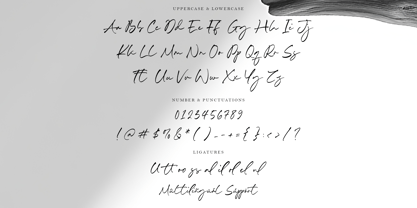 UPPERCASE & LOWERCASE
Aa Bb Cc Dd Ee Ff Gg Hh Ii Jj
Kk Ll Mm Nn Oo Pp Qq Rr Ss
Tt Uu Vv Ww Xx Yy Zz
NUMBER & PUNCTUATIONS
0123456789
! @ # $ % & * ( ) _ - + = { } : < > / ?
LIGATURES
Multilingual Support